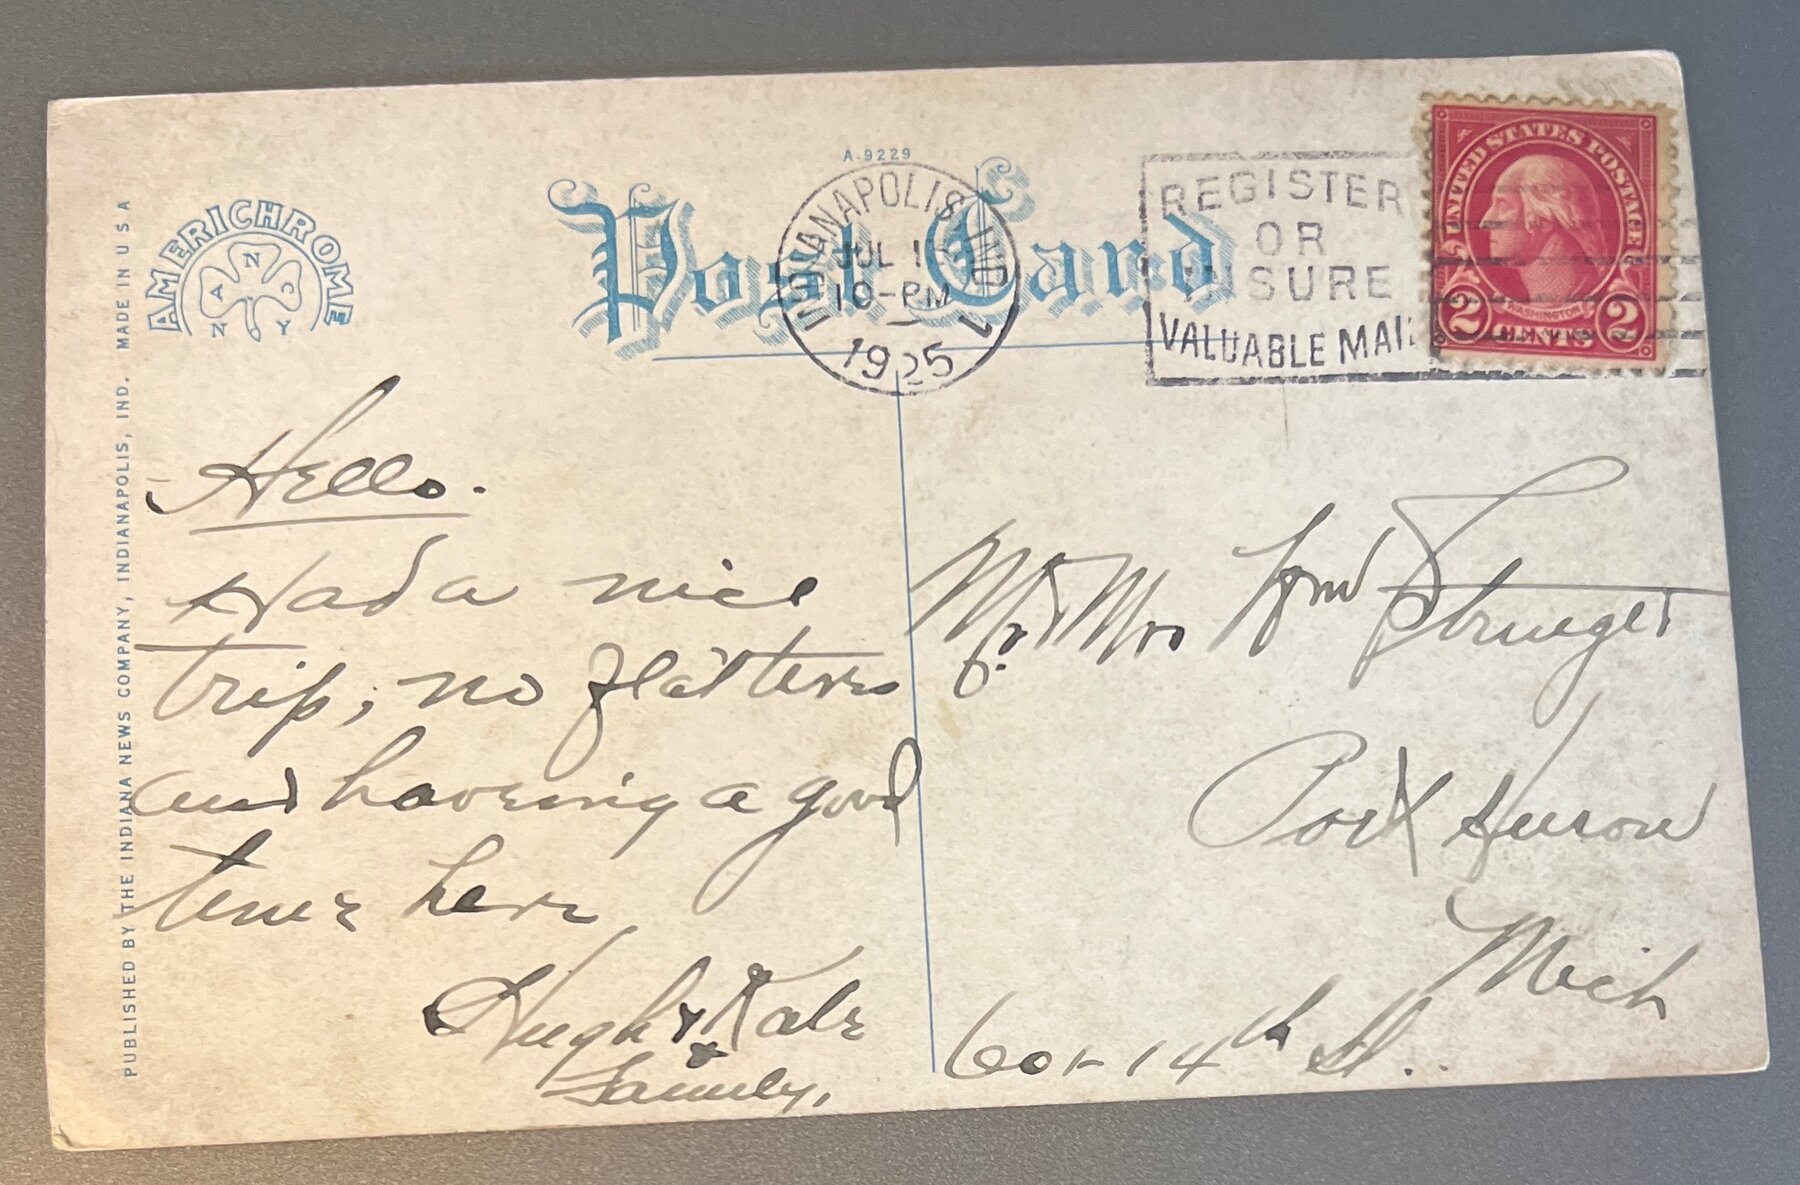 AMERICHROME
A N C
N Y
PUBLISHED BY THE INDIANA NEWS COMPANY, INDIANAPOLIS, IND. MADE IN U S A
A-9229
Post Card
INDIANAPOLIS, IND.
JUL
10-PM
1925
1
REGISTER
OR
INSURE
VALUABLE MAIL
UNITED STATES POSTAGE
WASHINGTON
2 CENTS 2
Hello.
Had a nice
trip, no flat tires
and haveing a good
time here
Hugh & Kate
& Family,
Mr & Mrs Wm Strueger
Port Huron
Mich
601-14th St..